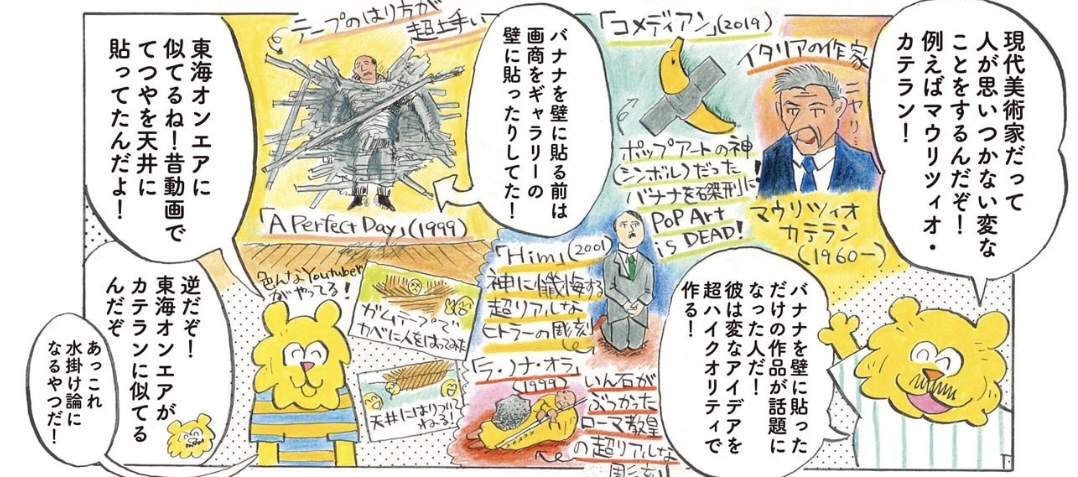 現代美術家だって
人が思いつかない変な
ことをするんだぞ！
例えばマウリツィオ・
カテラン！
イタリアの作家
ニヤリ…
マウリツィオ
カテラン
（1960ー）
「コメディアン」（2019）
ポップアートの神
（シンボル）だった
バナナを磔刑に！
PoP Art
is DEAD!
バナナを壁に貼った
だけの作品が話題に
なった人だ！
彼は変なアイデアを
超ハイクオリティで
作る！
バナナを壁に貼る前は
画商をギャラリーの
壁に貼ったりしてた！
テープのはり方が
超上手い
「A Perfect Day」（1999）
「Him」（2001）
神に懺悔する
超リアルな
ヒトラーの彫刻
「ラ・ノナ・オラ」
（1999）
いん石が
ぶつかった
ローマ教皇
の超リアルな
彫刻
東海オンエアに
似てるね！昔動画で
てつやを天井に
貼ってたんだよ！
色んなYoutuber
がやってる！
ガムテープで
カベに人をはってみた
天井にはりつけて
ねる！
逆だぞ！
東海オンエアが
カテランに似てる
んだぞ
あっこれ
水掛け論に
なるやつだ！